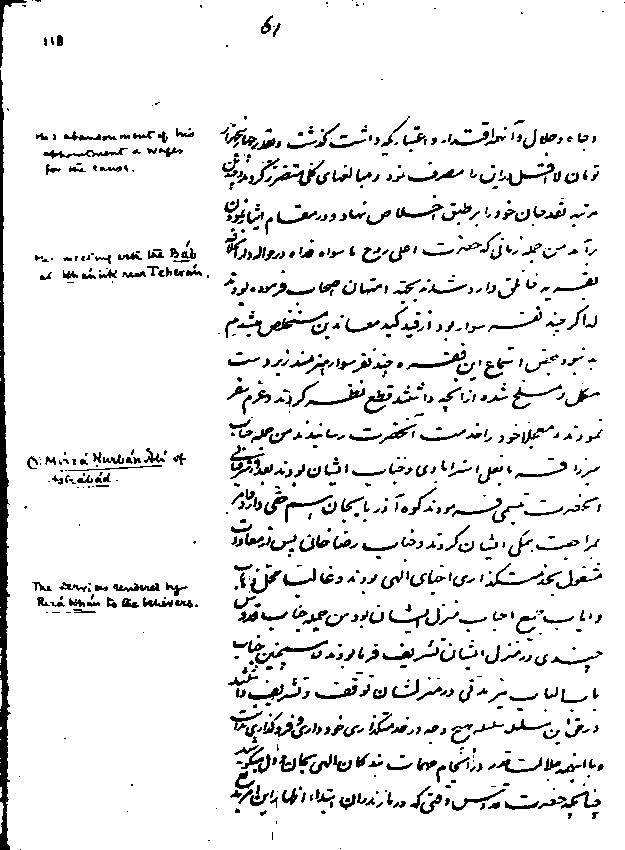 61
118
His abandonment of his
appointment & wages
for the cause.
His meeting with the Báb
at Khánlik near Teherán.
Mirzá Kurbán Ali of
Astrábád.
The services rendered by
Rezá Khán to the believers.
و جاه و جلال و آنهمه اقتدار و اعتبار که داشت گذشت و بقدر چهار پنجهزار
تومان لا اقل را مصرف نمود و مبالغهای کلی متضرر گردید و چندین
مرتبه نقد جان خود را بر طبق اخلاص نهاد و در مقام ایثار نمودن
بر آمد من جمله زمانی که حضرت اعلی روح ما سواه فداه در حوالی دار الخلافه
بقریه خانلق وارد شدند بجهة امتحان اصحاب فرموده بودند
که اگر چند نفر سوار بود از قید کید معاندین مستخلص میشدیم
به نبود بمحض استماع این فقره چند نفر سوار هنرمند زبردست
مکمل و مسلح شده از آنچه داشتند قطع نظر کردند و عزم سفر
نمودند و معجلا خود را خدمت آنحضرت رسانیدند من جمله جناب
میرزا قربانعلی استرابادی و جناب ایشان بودند بعد از شرفیابی
آنحضرت تبسمی فرمودند کوه آذربایجان هم حقی دارد و امر
بمراجعت همگی ایشان کردند و جناب رضا خان پس از معاودت
مشغول بخدمتگذاری احبای الهی بودند و غالب محل ذهاب
و ایاب جمیع احباب منزل ایشان بود من جمله جناب قدوس
چندی در منزل ایشان تشریف فرما بودند همچنین جناب
باب الباب نیز مدتی در منزلشان توقف و تشریف داشتند
در حق این سلسله بهیچ وجه در خدمتگذاری خودداری و فروگذاری نداشت
و با آنهمه جلالت قدر در انجام مهمات بندگان الهی بجان و دل میکوشید
چنانچه حضرت قدوس وقتی که در مازندران ابتداء اظهار این امر بدیع